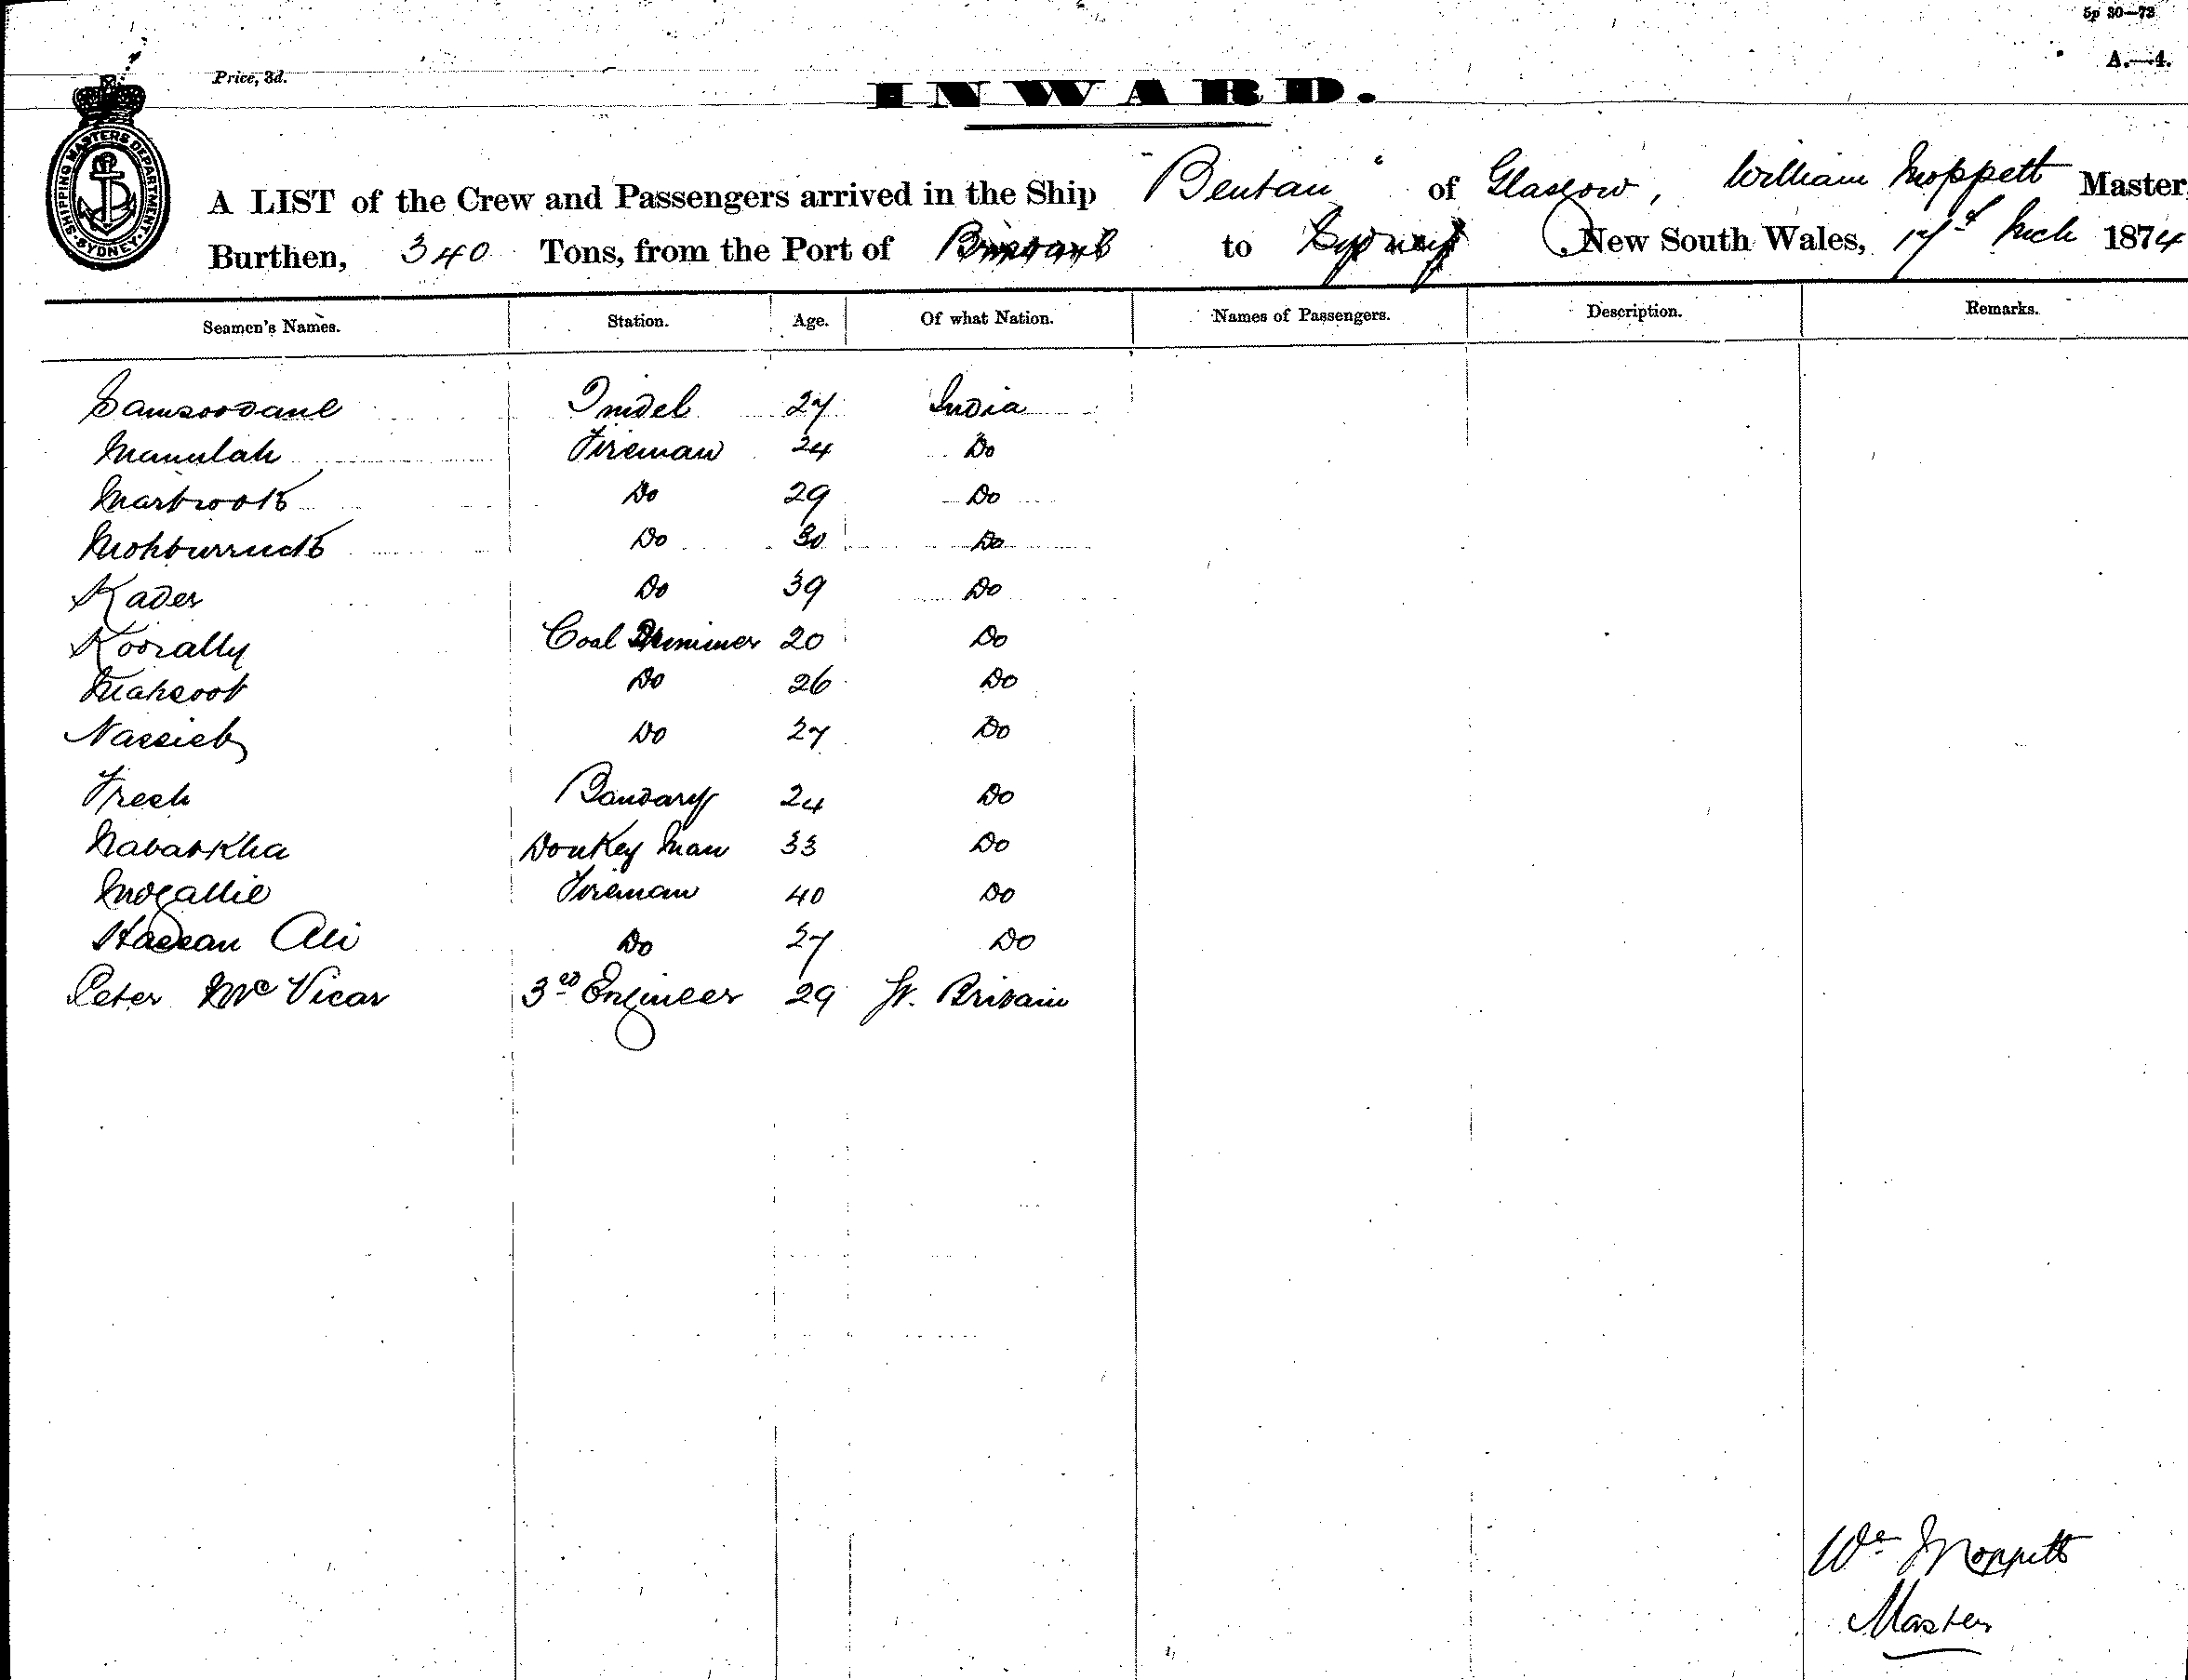 5p 30—73
A.—4.
Price, 3d.
INWARD.
SHIPPING MASTERS DEPARTMENT SYDNEY
A LIST of the Crew and Passengers arrived in the Ship "Bentan" of Glasgow, William Moppett Master,
Burthen, 340 Tons, from the Port of Brisbane to Sydney New South Wales, 17th Mch 1874
Seamen's Names. Station. Age. Of what Nation. Names of Passengers. Description. Remarks.
Samsoodane Tindel 27 India
Manulah Fireman 24 Do
Marbrook Do 29 Do
Mohburruck Do 30 Do
Kader Do 39 Do
Koorally Coal Trimmer 20 Do
Mahsoob Do 26 Do
Nassieb Do 27 Do
Fresh Bandary 24 Do
Nabatkha Donkey Man 33 Do
Mogallie Fireman 40 Do
Hassan Ali Do 27 Do
Peter McVicar 3rd Engineer 29 Gt. Britain
Wm Moppett
Master